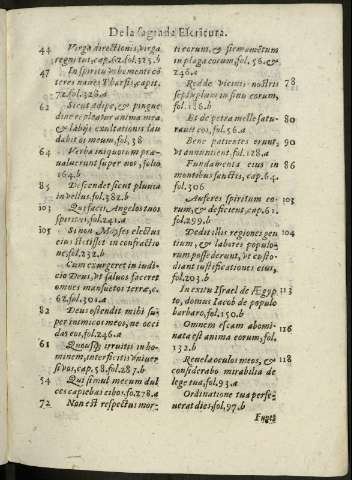 De la sagrada Escritura.
44 Virga directionis, virga
regni tui, cap. 62. fol. 325. b
47 In spiritu vehementi cõ
teres naves Tharsis, capit.
72. fol. 326. a
62 Sicut adipe, & pingue
dine repleatur anima mea
& labijs exultationis lau
dabit os meum, fol. 38
64 Verba iniquorum præ-
valuerunt super nos, folio
164. b
85 Descendet sicut pluvia
in vellus. fol. 382. b
103 Qui facis Angelos tuos
spiritus, fol. 241. a
105 Si non Moyses electus
eius stetisset in confractio
ne, fol. 232. b
Cum exurgeret in iudi-
cio Deus, ut salvos faceret
omnes mansuetos terræ, c.
62. fol. 301. a
82 Deus ostendit mihi su-
per inimicos meos, ne occi
das eos, fol. 246. a
61 Quousque irruitis in ho-
minem, interficitis univer
si vos, cap. 58. fol. 287. b
54 Qui simul mecum dul-
ces capiebas cibos, fo. 278. a
72 Non est respectus mor-
ti eorum, & firmamẽtum
in plaga eorum, fol. 56. &
246. a
Redde vicinis nostris 78
septuplum in sinu eorum,
fol. 186. b
Et de petra melle satu- 80
ravit eos, fol. 56. a
Bene patientes erunt, 90
ut annuntient. fol. 128. a
Fundamenta eius in 86
montibus sanctis, cap. 64.
fol. 306
Auferes spiritum eo-
rum, & deficient, cap. 61.
fol. 299. b
Dedit illis regiones gen 104
tium, & labores populo-
rum possederunt, ut custo-
diant iustificationes eius,
fol. 203. b
In exitu Israel de Ægyp 113
to, domus Iacob de populo
barbaro, fol. 150. b
Omnem escam abomi- 116
nata est anima eorum, fol.
132. b
Revela oculos meos, & 118
considerabo mirabilia de
lege tua, fol. 93. a
Ordinatione tua perse-
verat dies. fol. 97. b